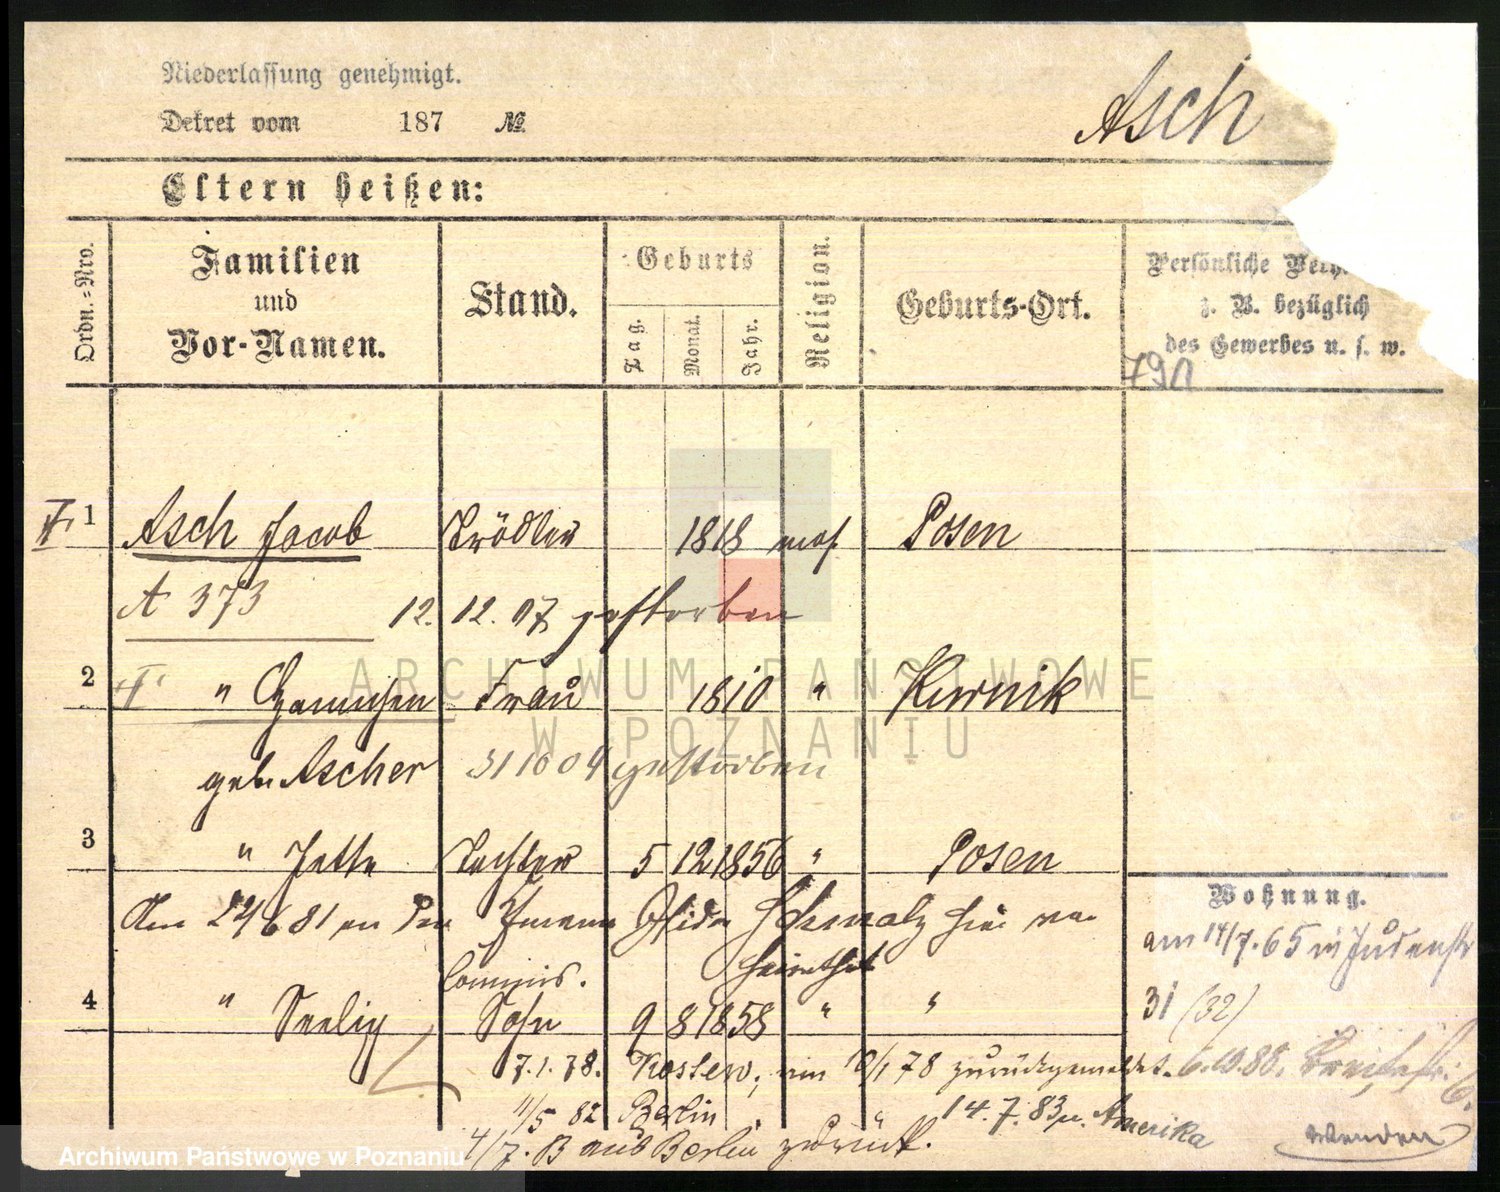 Niederlassung genehmigt.
Dekret vom 187 №
Asch
Eltern heißen:
Ordn.=Nro.
Familien
und
Vor-Namen.
Stand.
Geburts
Tag.
Monat.
Jahr.
Religion.
Geburts-Ort.
Persönliche
z. B. bezüglich
des Gewerbes u. s. w.
1 Asch Jacob Trödler 1818 mos. Posen
A 373 12. 12. 07 gestorben
2 " Frau 1810 " Kurnik
geb. Ascher 31 10 04 gestorben
3 " Jette Tochter 5 12 1856 " Posen
Am 24/6 81 an den hier ver
heirathet
Commis.
Wohnung.
am 14/7. 65 Judenstr
31 (32)
4 " Seelig Sohn 9 8 1858 " "
7. 1. 78. Kosten, am 10/1 78 zurückgemeldet.
6. 10. 88. Breitestr. 6.
11/5 82 Berlin " 14. 7. 83 n. Amerika
4/7. 83 aus Berlin zurück.
Wenden
ARCHIWUM PAŃSTWOWE
W POZNANIU
Archiwum Państwowe w Poznaniu